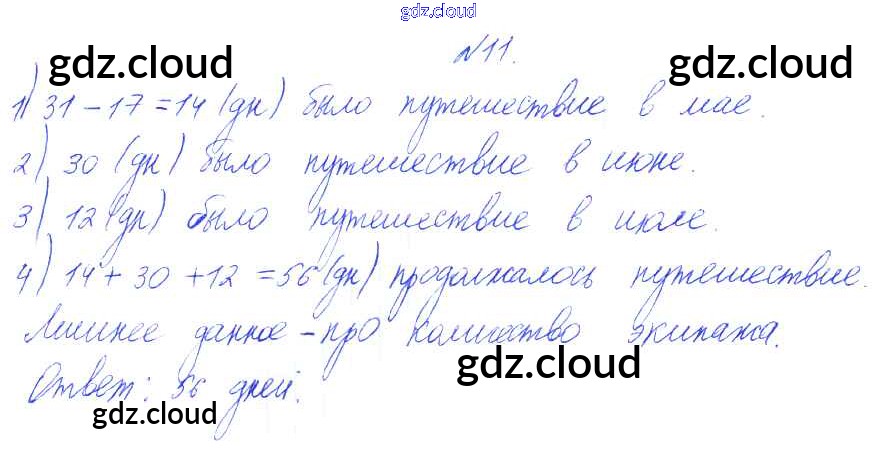 gdz.cloud
№11.
gdz.cloud gdz.cloud
1) 31 - 17 = 14 (дн) было путешествие в мае.
2) 30 (дн) было путешествие в июне.
3) 12 (дн) было путешествие в июле.
4) 14 + 30 + 12 = 56 (дн) продолжалось путешествие.
Лишнее данное - про количество экипажа.
gdz.cloud
Ответ: 56 дней.
gdz.cloud